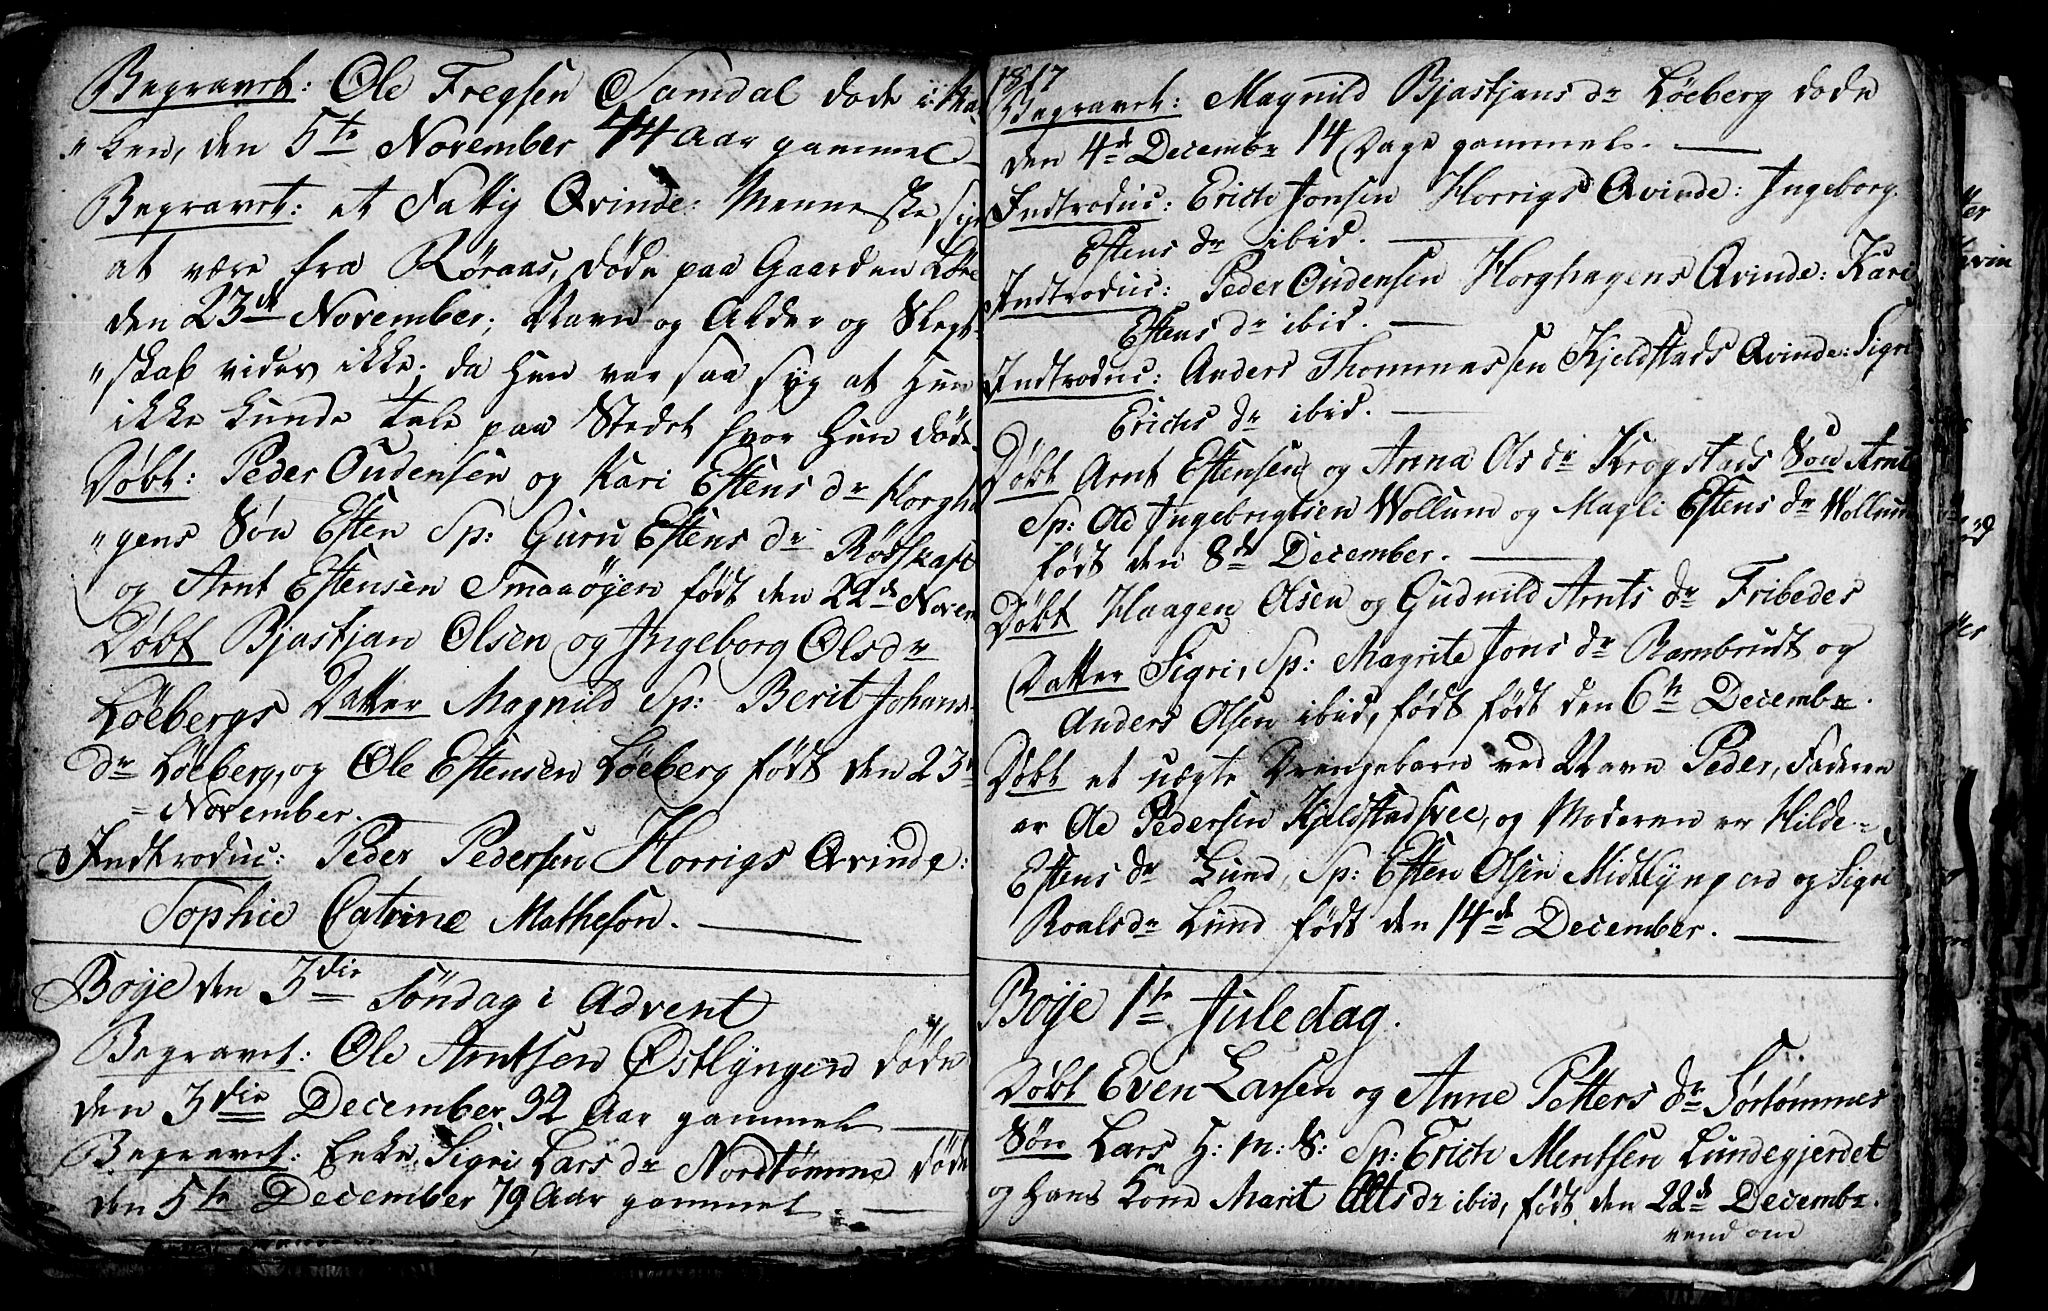 Begravet: Ole Fregsen Samdal døde i
ken, den 5te November 44 Aar gammel
Begravet: et Fattig Qvinde Menneske
at være fra Røraas, døde paa Gaarden
den 23de November; Navn og Alder og Slegt-
"skab vides ikke; da Hun var saa syg at Hun
ikke kunde tale paa Stedet hvor Hun døde
Døbt: Peder Oudensen og Kari Estens dr Horgha
"gens Søn Esten Sp: Guru Estens dr Rødskaft
og Arnt Estensen Smaaøyen født den 22de Novem
Døbt Bjastjan Olsen og Ingeborg Olsdr
Løebergs Datter Magnild Sp: Berit Johans
dr Løeberg, og Ole Estensen Løeberg født den 23de
= November.
Indtroduc: Peder Pedersen Horrigs Qvinde:
Sophie Catrine Matheson.
Boÿe den 3die Søndag i Advent
Begravet: Ole Arntsen Østlÿngen døde
den 3die December 32 Aar gammel
Begravet: Enke Sigri Lars dr Nordtømme døde
den 5te December 79 Aar gammel
1817
Begravet: Magnild Bjastjans dr Løeberg døde
den 4de Decembr 14 Dage gammel.
Indtroduc: Erich Jonsen Horrigs Qvinde: Ingeborg
Estens dr ibid.
Indtroduc: Peder Oudensen Horghagens Qvinde: Kari
Estens dr ibid.
Indtroduc: Anders Thommessen Kjeldstads Qvinde: Sigri
Erichs dr ibid.
Døbt Arnt Estensen og Anna Ols dr Krogstads Søn Arnt
Sp: Ole Ingebrigtsen Wollum og Magli Estens dr Wollum
født den 8de December.
Døbt Haagen Olsen og Gudnild Arnts dr Fribedes
Datter Sigri, Sp: Magrite Jons dr Rambrudt og
Anders Olsen ibid, født født den 6te Decembr.
Døbt et uægte Drengebarn ved Navn Peder, Faderen
er Ole Pedersen Kjeldstadsvee, og Moderen er Hilde
Estens dr Lund, Sp: Esten Olsen Midtlyngen og Sigri
Roalsdr Lund født den 14de December.
Boÿe 1te Juledag.
Døbt Even Larsen og Anne Petters dr Sørtømmes
Søn Lars H: M: S: Sp: Erich Mentsen Lundegjerdet
og Hans Kone Marit Oltsdr ibid, født den 22de Decembr.
vend om